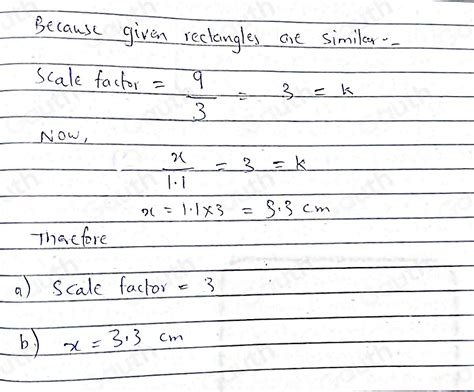 Because given rectangles are similar :-
Scale factor = 9/3 = 3 = k
Now,
x/1.1 = 3 = k
x = 1.1 × 3 = 3.3 cm
Therefore
a) Scale factor = 3
b) x = 3.3 cm